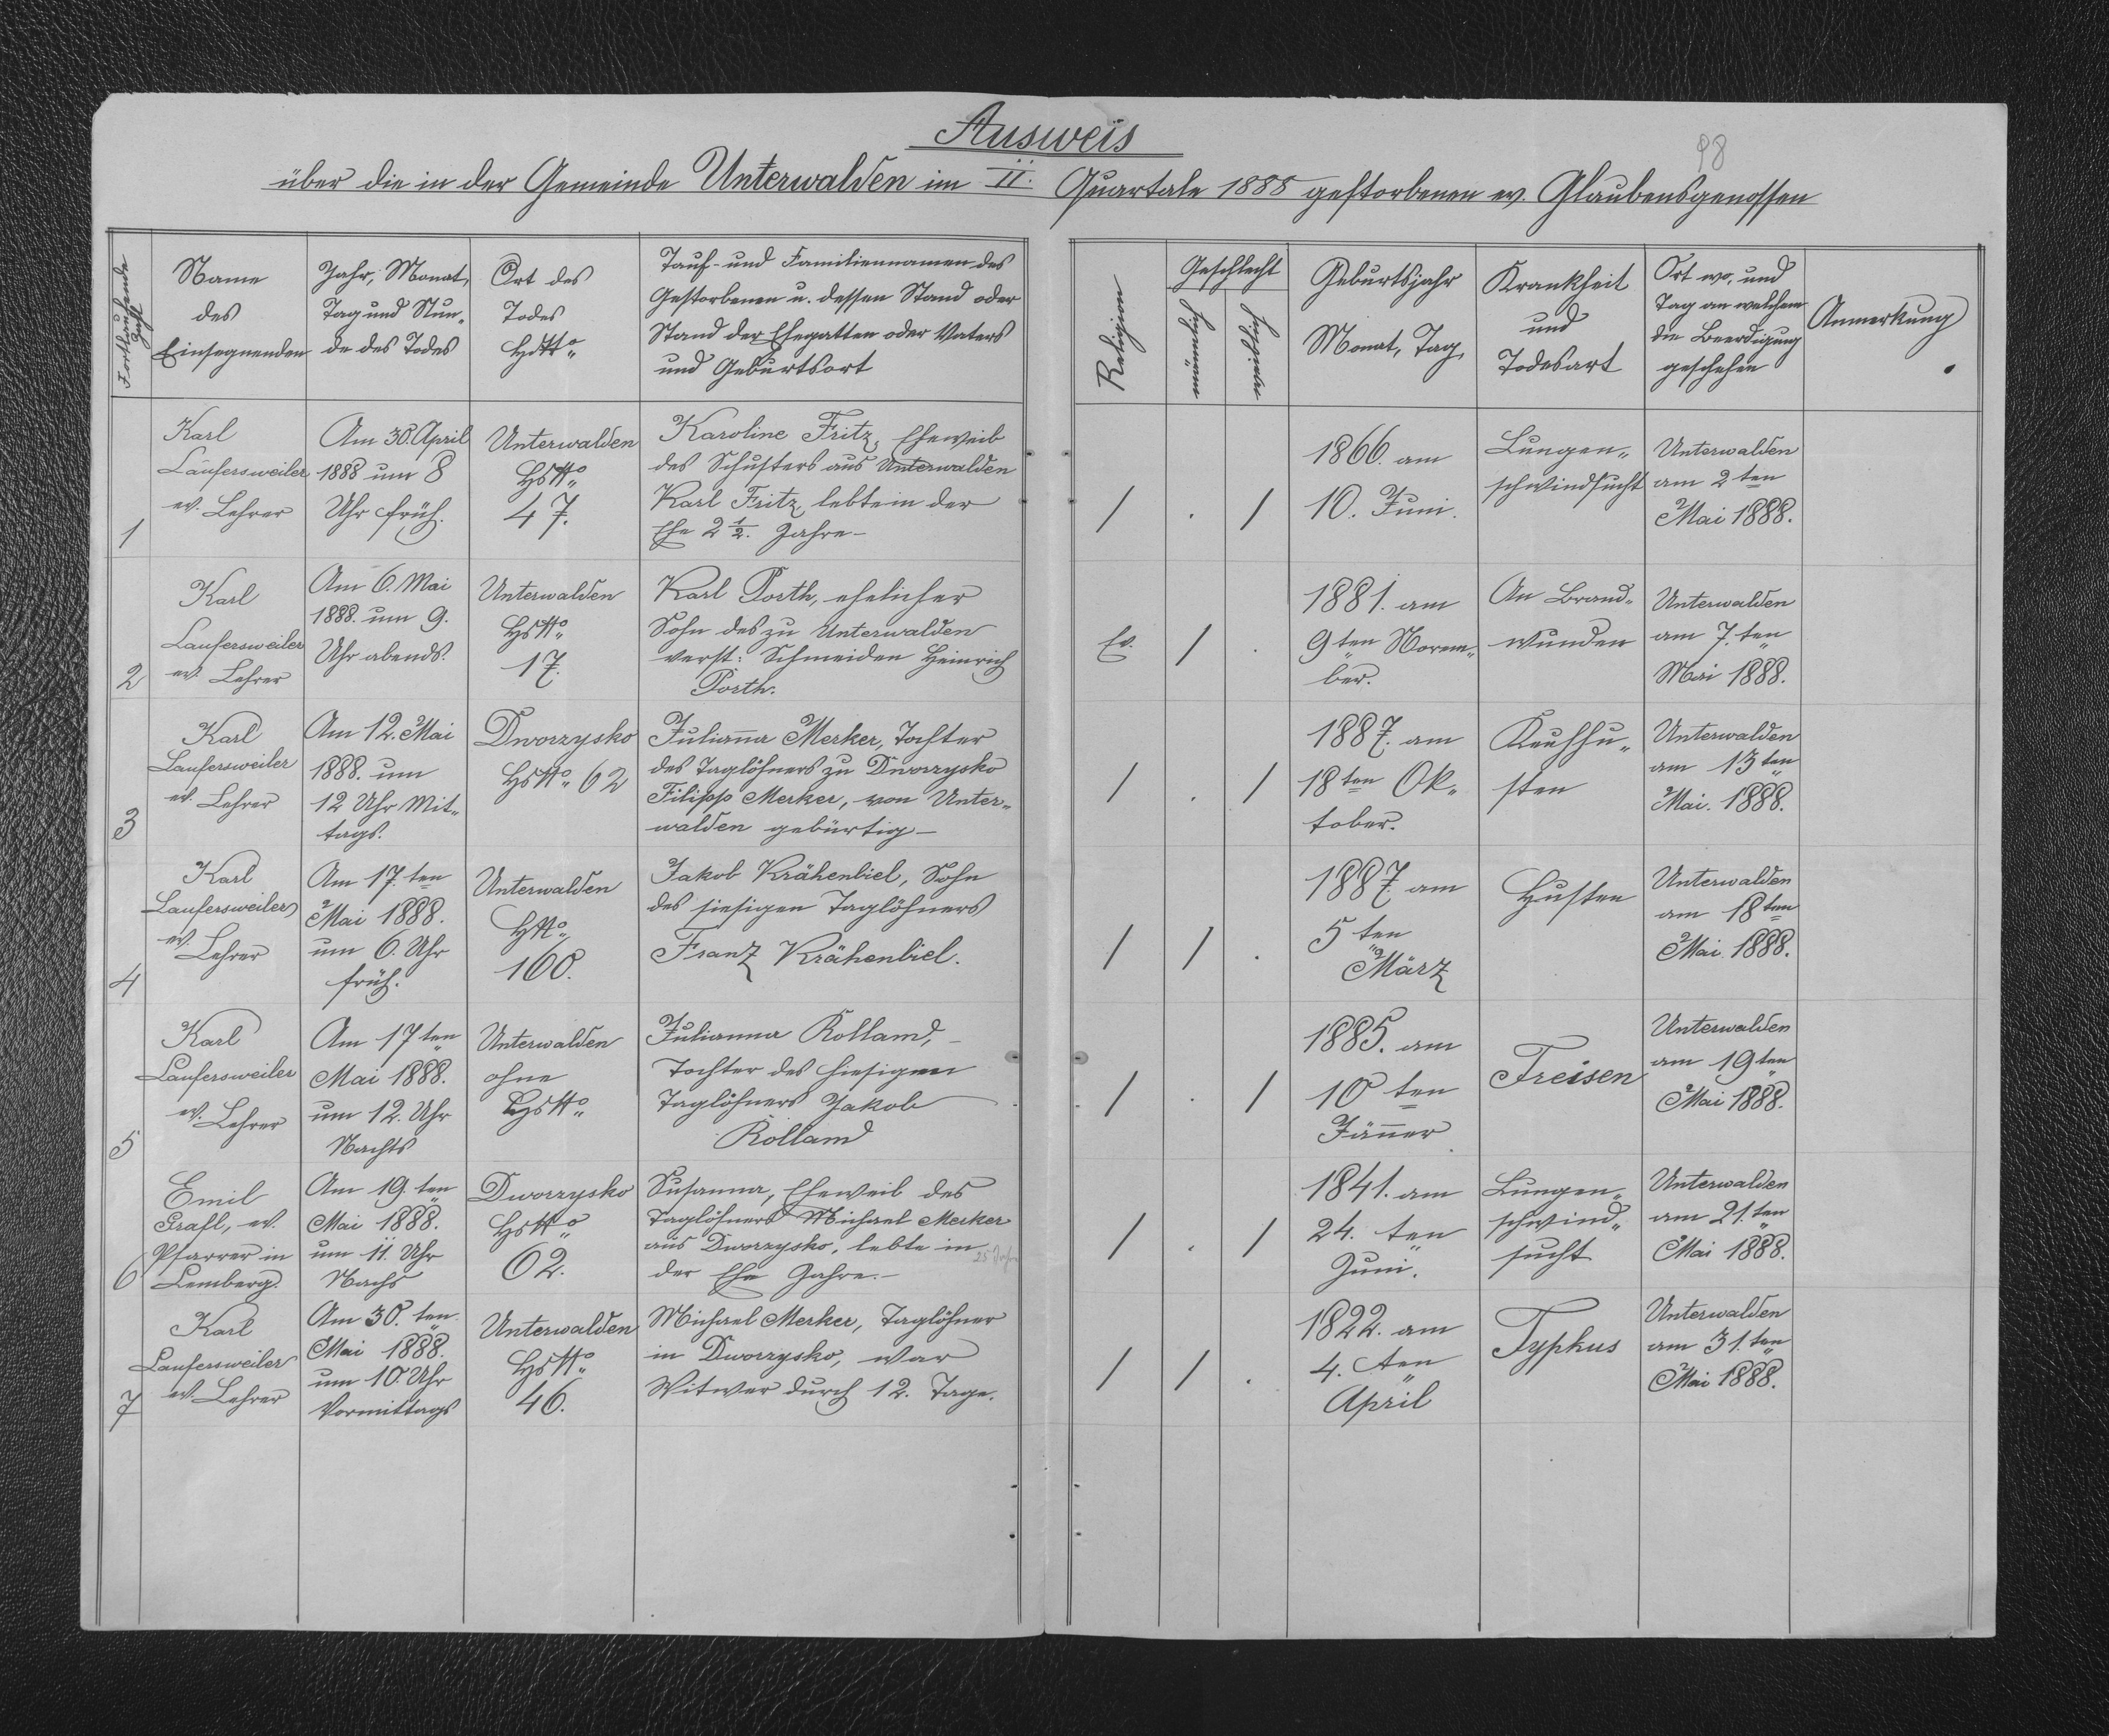 Ausweis
98
über die in der Gemeinde Unterwalden im II. Quartale 1888 gestorbenen ev. Glaubensgenossen
Fortlaufende Zahl
Name
des
Einsegnenden
Jahr, Monat,
Tag und Stun„
de des Todes
Ort des
Todes
HsNo„
Tauf- und Familiennamen des
Gestorbenen u. dessen Stand oder
Stand der Ehegatten oder Vaters
und Geburtsort
Religion
Geschlecht
männlich
weiblich
Geburtsjahr
Monat, Tag,
Krankheit
und
Todesart
Ort wo, und
Tag an welchem
die Beerdigung
geschehen
Anmerkung
1
Karl
Laufersweiler
ev. Lehrer
Am 30. April
1888 um 8
Uhr früh.
Unterwalden
HsNo„
47.
Karoline Fritz, Eheweib
des Schusters aus Unterwalden
Karl Fritz, lebte in der
Ehe 2 1/2. Jahre –
/ . /
1866. am
10. Juni.
Lungen„
schwindsucht
Unterwalden
am 2ten
Mai 1888.
2
Karl
Laufersweiler
ev. Lehrer
Am 6. Mai
1888. um 9.
Uhr abends.
Unterwalden
HsNo„
17.
Karl Porth, ehelicher
Sohn des zu Unterwalden
verst: Schmeiden Heinrich
Porth.
Ev. / .
1881. am
9ten Novem„
ber.
An Brand„
wunden
Unterwalden
am 7. ten
Mai 1888.
3
Karl
Laufersweiler
ev. Lehrer
Am 12. Mai
1888. um
12 Uhr Mit„
tags.
Dworzysko
HsNo„ 62
Julianna Merker, Tochter
des Taglöhners zu Dworzysko
Filipp Merker, von Unter„
walden gebürtig –
/ . /
1887. am
18ten Ok„
tober.
Keuchhu„
sten
Unterwalden
am 13ten
Mai. 1888.
4
Karl
Laufersweiler
ev. Lehrer
Am 17. ten
Mai 1888.
um 6. Uhr
früh.
Unterwalden
HNo„
160.
Jakob Krähenbiel, Sohn
des hiesigen Taglöhners
Franz Krähenbiel.
/ / .
1887. am
5ten
März
Husten
Unterwalden
am 18ten
Mai. 1888.
5
Karl
Laufersweiler
ev. Lehrer
Am 17ten
Mai 1888.
um 12. Uhr
Nachts
Unterwalden
ohne
HsNo„
Julianna Rolland, –
Tochter des hiesigen
Taglöhners Jakob
Rolland
/ . /
1885. am
10ten
Jänner
Freisen
Unterwalden
am 19ten
Mai 1888.
6
Emil
Grafl, ev.
Pfarrer in
Lemberg.
Am 19. ten
Mai 1888.
um 11. Uhr
Nachs
Dworzysko
HsNo„
62.
Susanna, Eheweib des
Taglöhners Michael Merker
aus Dworzysko, lebte in
der Ehe Jahre. –
25 Jahre
/ . /
1841. am
24. ten
Juni.
Lungen„
schwind„
sucht
Unterwalden
am 21. ten
Mai 1888.
7
Karl
Laufersweiler
ev. Lehrer
Am 30. ten
Mai 1888.
um 10. Uhr
Vormittags
Unterwalden
HsNo„
46.
Michael Merker, Taglöhner
in Dworzysko, war
Witwer durch 12. Tage.
/ / .
1822. am
4. ten
April
Typhus
Unterwalden
am 31. ten
Mai 1888.